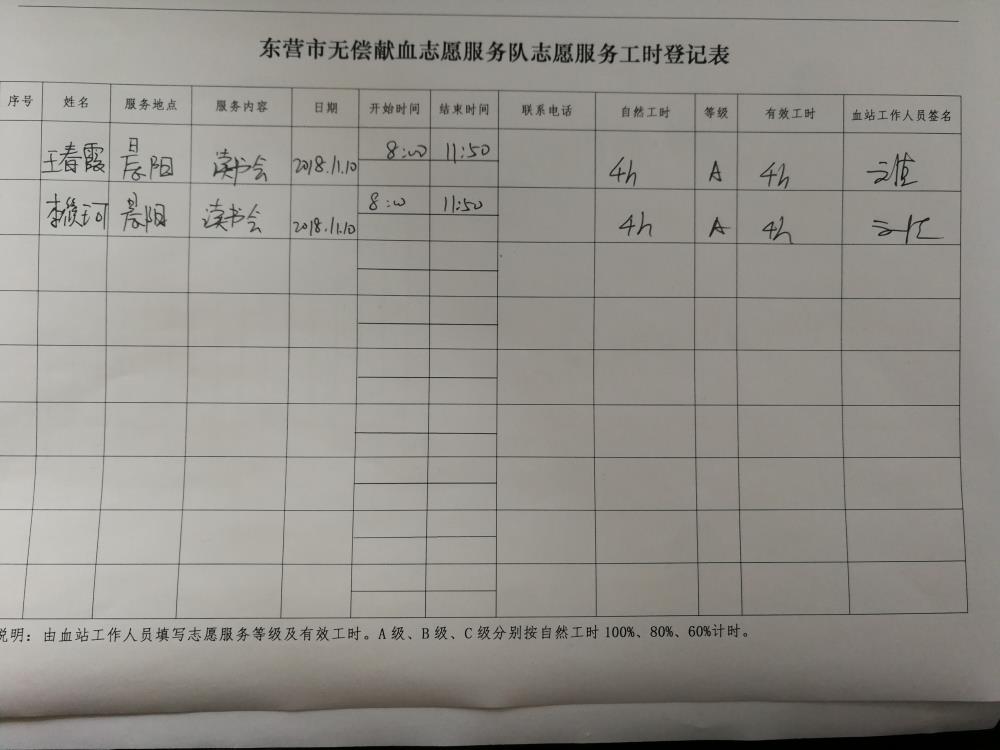 东营市无偿献血志愿服务队志愿服务工时登记表
序号 姓名 服务地点 服务内容 日期 开始时间 结束时间 联系电话 自然工时 等级 有效工时 血站工作人员签名
王春霞 晨阳 读书会 2018.11.10 8:00 11:50 4h A 4h
晨阳 读书会 2018.11.10 8:00 11:50 4h A 4h
说明：由血站工作人员填写志愿服务等级及有效工时。A 级、B 级、C 级分别按自然工时 100%、80%、60%计时。